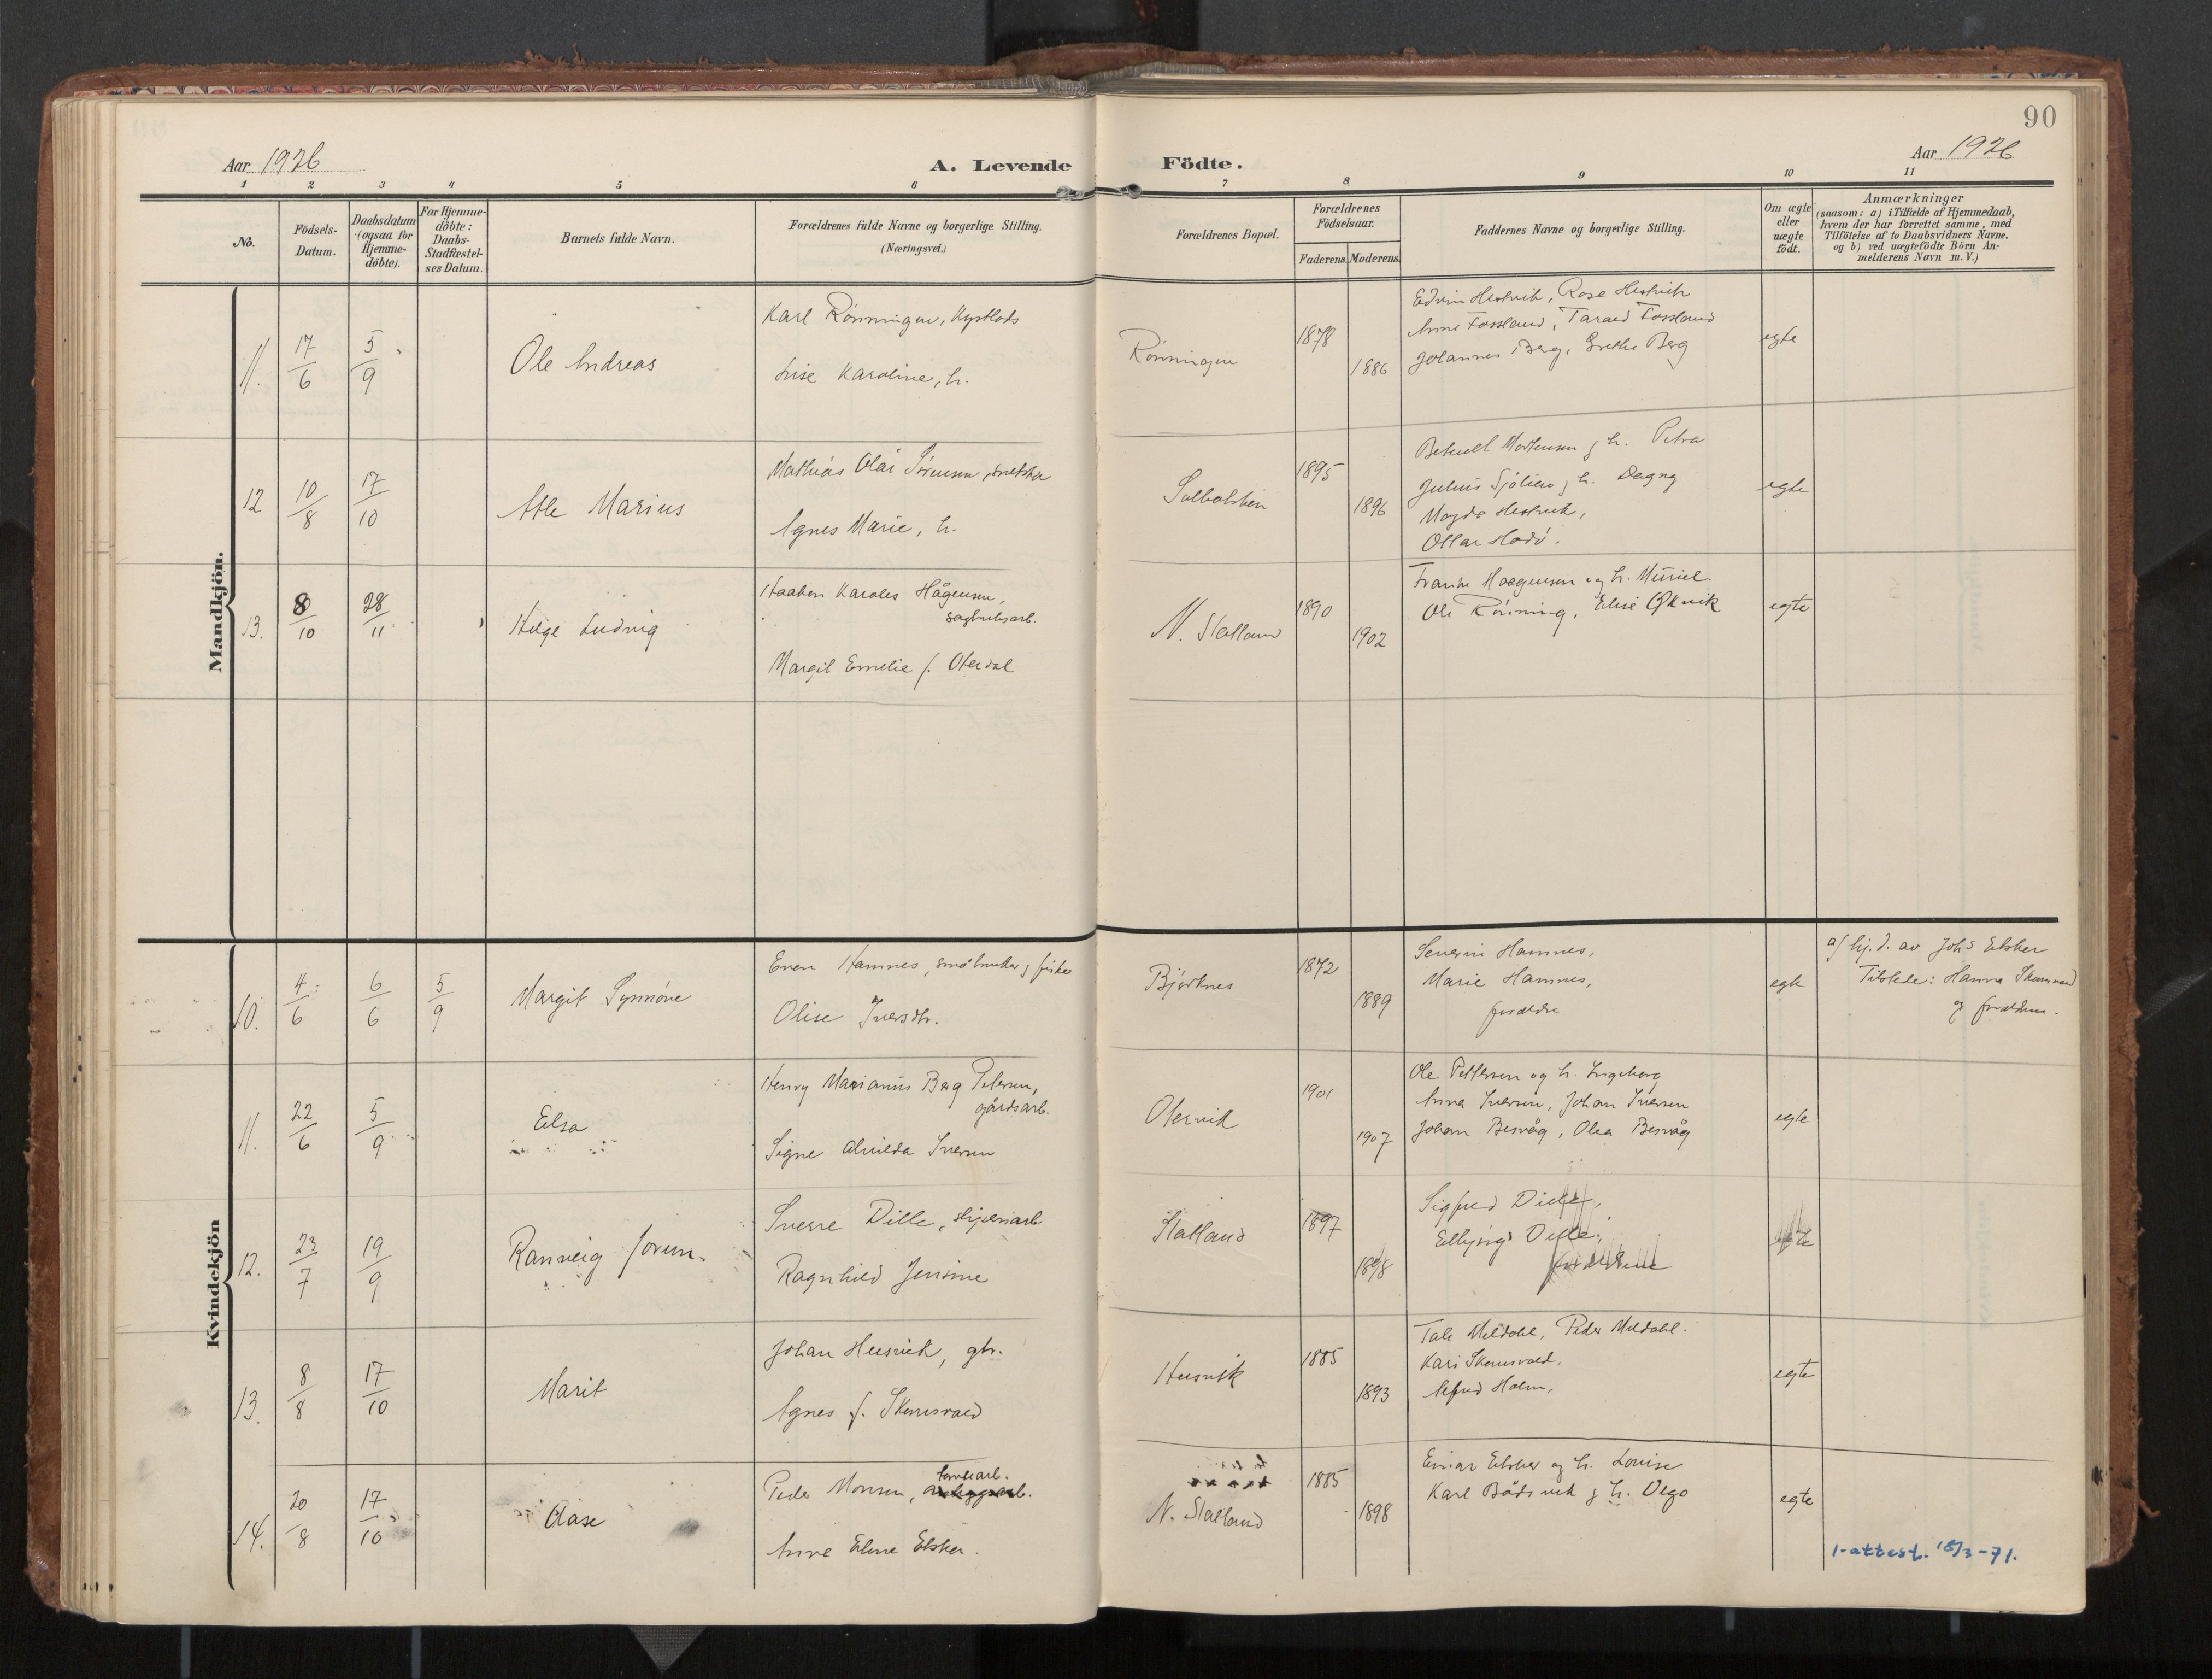 90
Aar 1926
A. Levende Födte.
Aar 1926
1 2 3 4 5 6 7 8 9 10 11
No.
Födsels-Datum.
Daabsdatum (ogsaa for Hjemme-döbte).
For Hjemme-döbte: Daabs-Stadfæstel-ses Datum.
Barnets fulde Navn.
Forældrenes fulde Navne og borgerlige Stilling.
(Næringsvei.)
Forældrenes Bopæl.
Forældrenes Födselsaar.
Faderens. Moderens.
Faddernes Navne og borgerlige Stilling.
Om ægte eller uægte födt.
Anmærkninger
(saasom: a) i Tilfælde af Hjemmedaab,
hvem der har forrettet samme, med
Tilföielse af to Daabsvidners Navne,
og b) ved uægtefödte Börn An-
melderens Navn m. V.)
Mandkjön.
11. 17/6 5/9 Ole Andreas
Karl Rönningen, Kystlods
Lise Karoline, h.
Rönningen 1878 1886
Edvin Hestvik, Rose Hestvik
Anne Fossland, Tarald Fossland
Johannes Berg, Grethe Berg
egte
12 10/8 17/10 Atle Marius
Mathias Olai Sörensen,
Agnes Marie, h.
1895 1896
Betuel Mortensen g h. Petra
Julius Sjölien g h. Dagny
Magda Hestvik,
Ottar Hodö.
egte
13. 8/10 28/11 Helge Ludvig
Haaken Karoles Hågensen,
sagbruksarb.
Margit Emelie f. Oterdal
N. Statland 1890 1902
Frantz Haagensen og h. Muriel
Ole Rönning, Elise Økvik
egte
Kvindekjön
10. 4/6 6/6 5/9 Margit Synnöve
Even Hamnes, småbruker g fisker
Olise Iversdtr.
Bjørknes 1872 1889
Severin Hamnes,
Marie Hamnes,
forældre
egte
a/ hj. d. av Johs Elsker
Tilstede: Hanna Skomsvold
og forældrene.
11. 22/6 5/9 Elsa
Henry Marianus Berg Petersen,
gårdsarb.
Signe Alvilda Iversen
Otervik 1901 1907
Ole Pettersen og h. Ingeborg
Anna Iversen, Johan Iversen
Johan Besvåg, Olea Besvåg
egte
12. 23/7 19/9 Ranveig Jorun.
Sverre Dille,
Ragnhild Jensine
Statland 1897 1898
Sigfred Dille,
Dille,
forældrene
egte
13. 8/8 17/10 Marit
Johan Husvik, gbr.
Agnes f. Skomsvold
Husvik 1885 1893
Tale Meldahl, Peder Meldahl.
Kari Skomsvold,
Alfred Holm,
egte
14. 20/8 17/10 Aase
Peder Monsen, tømmerarb.
Anne Eline Elsker.
N. Statland 1885 1898
Einar Elsker og h. Louise
Karl Bödsvik g h. Olga
egte
1-attest. 18/3-71.